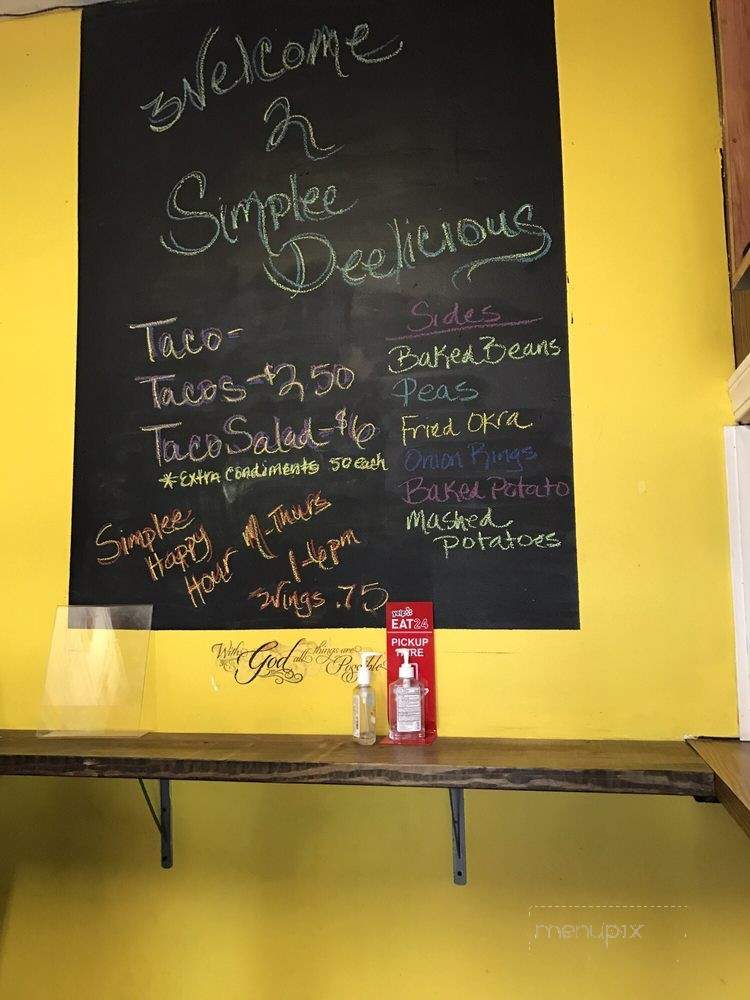 Welcome
2
Simplee
Deelicious
Taco-
Tacos-$2 50
Taco Salad-$6
*Extra Condiments 50 each
Sides
Baked Beans
Peas
Fried Okra
Onion Rings
Baked Potato
Mashed
potatoes
Simplee
Happy
Hour
M-Thurs
1-6pm
Wings .75
With God all things are Possible
yelp
EAT24
PICKUP
HERE
menupix